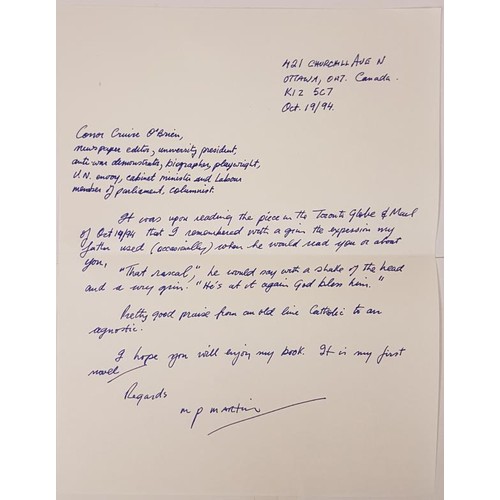 421 CHURCHILL AVE N
OTTAWA, ONT. Canada.
K1Z 5C7
Oct. 19/94.
Conor Cruise O'Brien,
newspaper editor, university president,
anti war demonstrator, biographer, playwright,
U.N. envoy, cabinet minister and Labour
member of parliament, columnist.
It was upon reading the piece in the Toronto Globe & Mail
of Oct 19/94 that I remembered with a grin the expression my
father used (occasionally) when he would read you or about
you,
"That rascal," he would say with a shake of the head
and a wry grin. "He's at it again God bless him."
Pretty good praise from an old line Catholic to an
agnostic.
I hope you will enjoy my book. It is my first
novel
Regards
M P MARTIN